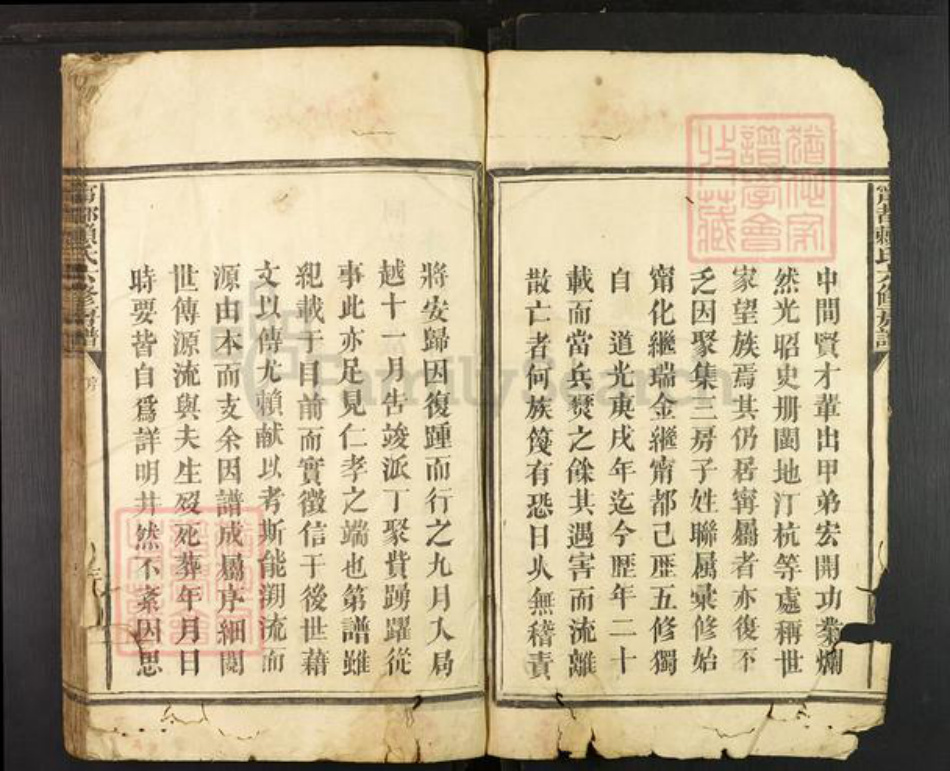 甯都賴氏六修房譜
中間賢才輩出甲弟宏開功業爛
然光昭史册閩地汀杭等處稱世
家望族焉其仍居甯屬者亦復不
乏因聚集三房子姓聯属彙修始
甯化繼瑞金繼甯都己歷五修獨
自 道光庚戌年迄今歷年二十
載而當兵燹之餘其遇害而流離
散亡者何族篾有恐日乆無稽責
將安歸因復踵而行之九月入局
越十一月告竣派丁聚貲踴躍從
事此亦足見仁孝之端也第譜雖
紀載于目前而實徵信于後世藉
文以傳尤賴献以考斯能溯流而
源由本而支余因譜成屬序細閱
世傳源流與夫生殁死葬年月日
時要皆自爲詳明井然不紊因思
甯都賴氏六修房譜
FamilySearch